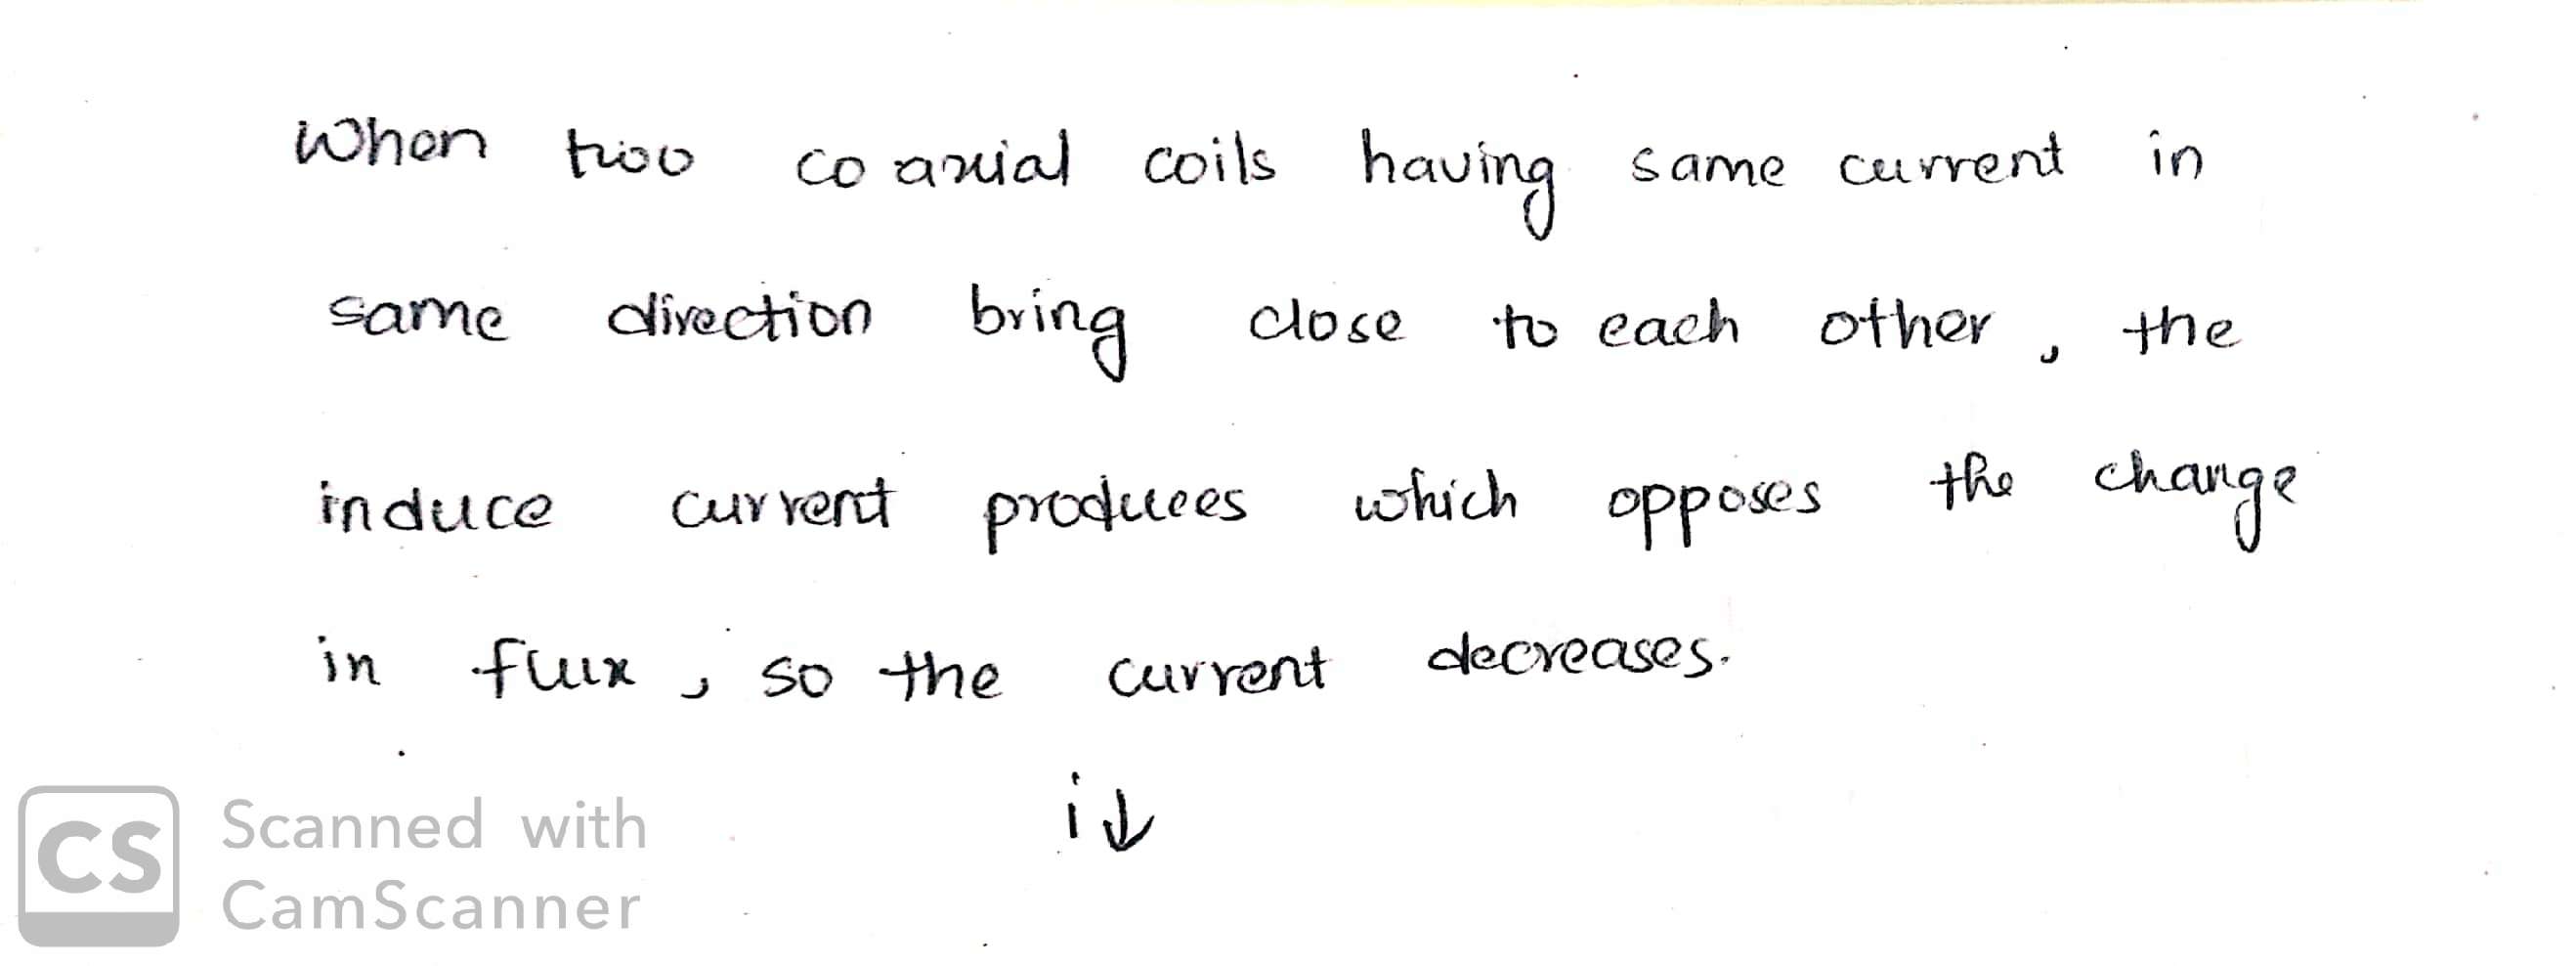 When two co axial coils having same current in
same direction bring close to each other, the
induce current produces which opposes the change
in flux, so the current decreases.
i↓
CS Scanned with
CamScanner